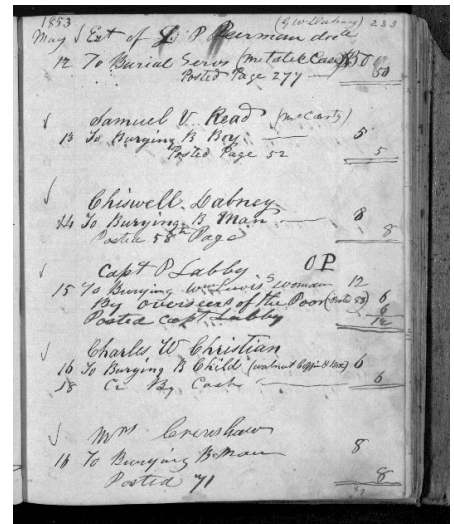 1853 (G W Dabney) 233
May Est of J P Peerman decd
12 To Burial Servs (metalic Case) $50
Posted Page 277 50
Samuel V. Read (McCarty)
13 To Burying B Boy 5
Posted Page 52 5
Chiswell Dabney
14 To Burying B Man 8
Posted 58th Page 8
Capt P Labby O P
15 To Burying Wm Lewis's woman 12
By overseers of the Poor (Posted 53) 6
Posted Capt Labby 6
12
Charles W Christian
16 To Burying B Child (walnut Coffin & box) 6
18 Cr By Cash 6
Mrs Crenshaw
16 To Burying B Man 8
Posted 71 8